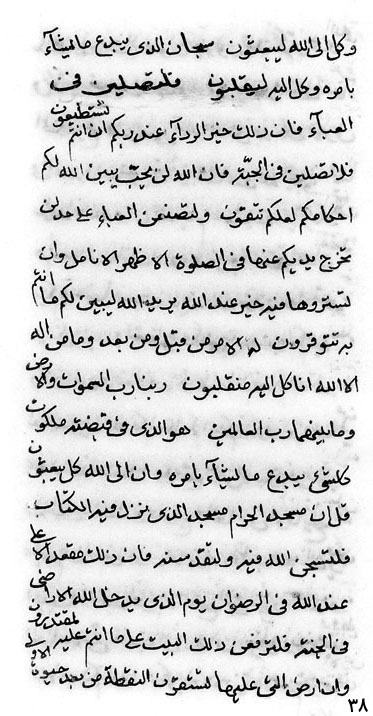 وكل الى الله ليبعثون سبحان الذى يبدع ما يشآء
بامره وكل اليه ليقلبون فلتصلين فى
العبآء فان ذلك خير الردآء عند ربكم ان انتم تستطيعون
فلا تصلين فى الجبّة فان الله لن يحبّ يبين الله لكم
احكامكم لعلكم تتقون ولتصنعن العباء على حد لن
تخرج يديكم عنها فى الصلوة الا ظهر الانامل وان
لتستروها فيه خير عند الله يريد الله ليبين لكم ما انتم
به تتوقرون له الامر من قبل ومن بعد وما من اله
الا الله انا كل اليه منقلبون ربنا رب السموات والارض
وما بينهما رب العالمين هو الذى فى قبضته ملكوت
كلشئ يبدع ما يشآء بامره وان الى الله كل يبعثون
قل ان مسجد الحرام مسجد الذى ينزل فيه الكتاب
فلتسبحن الله فيه ولتقدسنه فان ذلك مقعد الاعلى
عند الله فى الرضوان يوم الذى يدخل الله الاراضى
فى الجنة فلترفعن ذلك البيت على ما انتم عليه لمقتدرون
وان ارض التى عليها تستقرن النقطة من بعد حيوة الاولى
٣٨